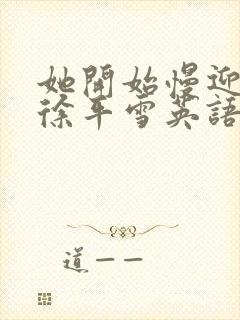 她開始慢迎
徐平雪英語
道一一